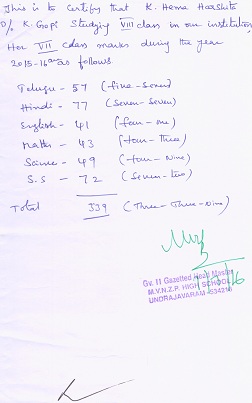 This is to Certify that K. Hema Harshita
D/o K. Gopi Studying VIII class in our institution,
Her VII class marks during the year
2015-16 as follows.
Telugu - 57 (five-seven)
Hindi - 77 (Seven-Seven)
English - 41 (four-one)
Maths - 43 (four-Three)
Science - 49 (four-Nine)
S.S - 72 (Seven-two)
Total 339 (Three-Three-Nine)
Gv. II Gazetted Head Master
M.V.N.Z.P. HIGH SCHOOL
UNDRAJAVARAM-534216